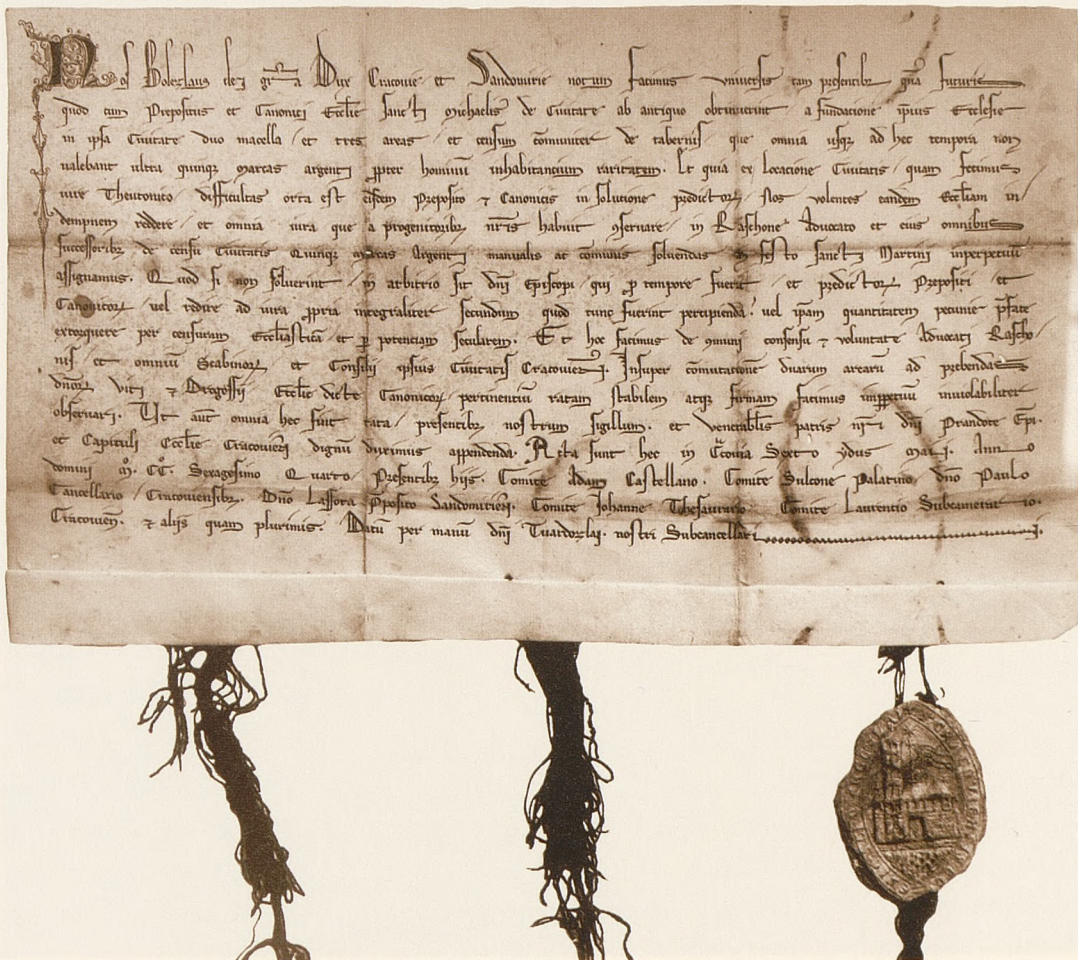 Nos Bolezlaus dei gr̄a Dux Cracouie et Sandomirie notum facimus vniuersis tam presentibꝫ q̄m futuris
quod cum Prepositus et Canonici Eccl̄ie sancti Michaelis de Ciuitate ab antiquo obtinuerint a fundacione ipsius Ecclesie
in ipsa Ciuitate duo macella et tres areas et censum cōmuniter de tabernis que omnia usqꝫ ad hec tempora non
ualebant ultra quinqꝫ marcas argenti ꝓpter hominū inhabitancium raritatem. Et quia ex Locacione Ciuitatis quam fecimus
iure Theutonico difficultas orta est eisdem Preposito ⁊ Canonicis in solucione predictoꝝ. Nos volentes eandem Eccl̄iam in
dempnem reddere et omnia iura que a progenitoribꝫ nr̄is habuit ꝯseruare in Raschone Aduocato et eius omnibus
successoribꝫ de censu Ciuitatis Quinqꝫ marcas Argenti manualis ac cōmunis soluendas in festo sancti Martini inperpetuū
assignamus. Quod si non soluerint in arbitrio sit dn̄i Episcopi qui ꝓ tempore fuerit et predictoꝝ Prepositi et
Canonicoꝝ vel redire ad iura ꝓpria integraliter secundum quod tunc fuerint percipienda. vel ip̄am quantitatem pecunie p̄fate
extorquere per censuram Eccl̄iasticā et ꝑ potenciam secularem. Et hoc facimus de ꝯmuni consensu ⁊ voluntate Aduocati Rascho
nis et omniū Scabinoꝝ et Consilij ipsius Ciuitatis Cracouien̄. Insuper cōmutacionē duarum arearū ad prebendas
dn̄oꝝ Viti ⁊ Drogossij Eccl̄ie dicte Canonicoꝝ pertinentiū ratam stabilem atqꝫ firmam facimus inꝑpetuū inuiolabiliter
obseruari. Ut aut̄ omnia hec sint rata presentibꝫ nostrum sigillum. et venerabil̄is patris nr̄i dn̄i Prandote Ep̄i.
et Capituli Eccl̄ie Cracouien̄ dignū duximus appendenda. Acta sunt hec in C̄couia Sexto ydus Maij. Anno
domini M̊. CC̊. Sexagesimo Quarto. Presentibꝫ hijs. Comite Adam Castellano. Comite Sulcone Palatino. dn̄o Paulo
Cancellario Cracouiensibꝫ. Dn̄o Lassota P̄posito Sandomirien̄. Comite Johanne Thesaurario. Comite Laurentio Subcamerario.
Cracouien̄. ⁊ alijs quam plurimis. Datū per manū dn̄i Tuardozlai. nostri Subcancellarij.